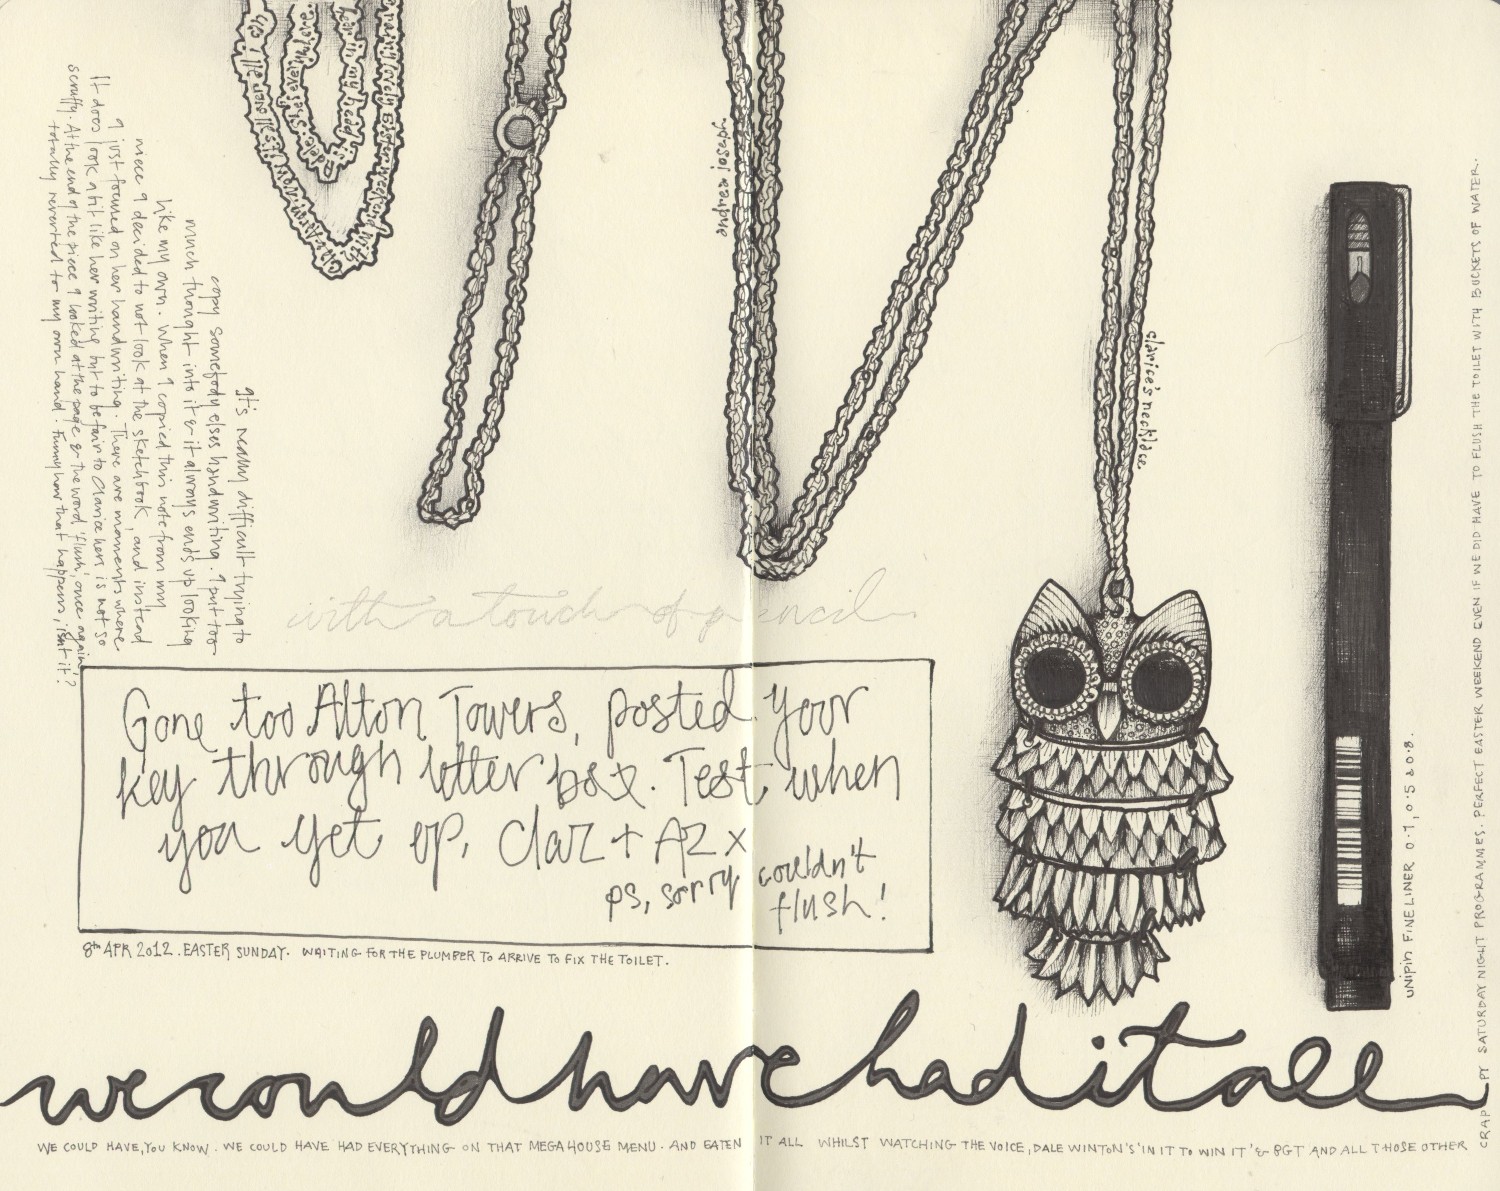 It's really difficult trying to
copy somebody elses handwriting. I put too
much thought into it & it always ends up looking
like my own. When I copied this note from my
niece I decided to not look at the sketchbook, and instead
I just focused on her handwriting. There are moments where
It does look a bit like her writing but to be fair to Clarice hers is not so
scruffy. At the end of the piece I looked at the page & the word, 'flush', once again
totally reverted to my own hand. Funny how that happens, isn't it?
andrea joseph
clarice's necklace
with a touch of pencil
Gone too Alton Towers, posted your
key through letter box. Test when
you get up, Claz + AZ x
ps, sorry couldn't
flush!
8th APR 2012. EASTER SUNDAY. WAITING FOR THE PLUMBER TO ARRIVE TO FIX THE TOILET.
UNIPIN FINELINER 0.1, 0.5 & 0.8.
we could have had it all
WE COULD HAVE, YOU KNOW. WE COULD HAVE HAD EVERYTHING ON THAT MEGA HOUSE MENU. AND EATEN IT ALL WHILST WATCHING THE VOICE, DALE WINTON'S 'IN IT TO WIN IT' & BGT AND ALL THOSE OTHER
CRAPPY SATURDAY NIGHT PROGRAMMES. PERFECT EASTER WEEKEND EVEN IF WE DID HAVE TO FLUSH THE TOILET WITH BUCKETS OF WATER.